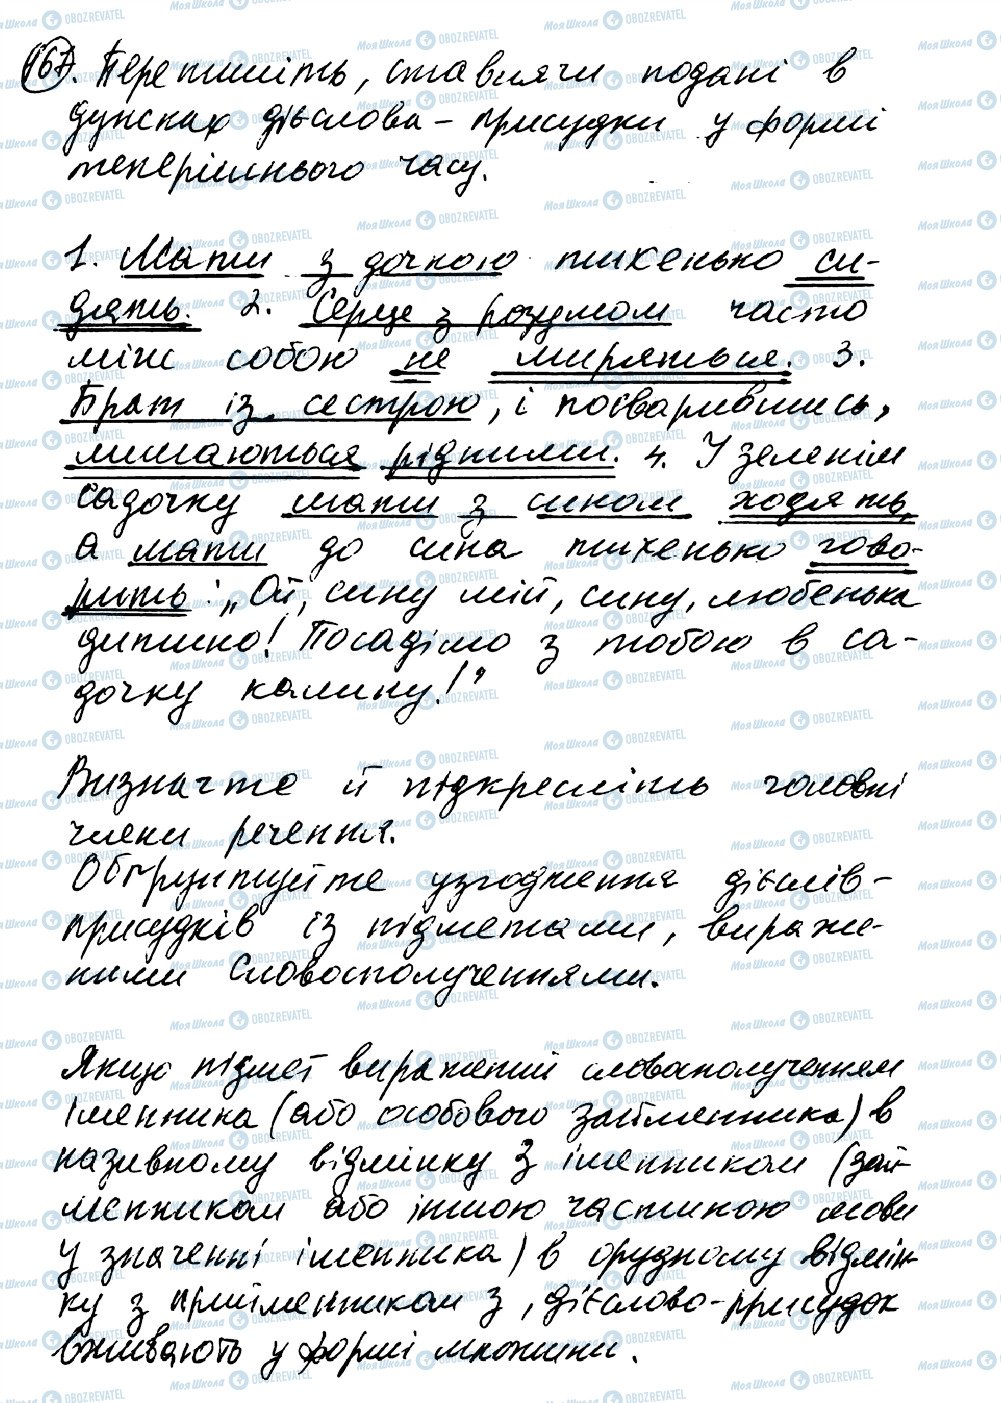 167. Перепишіть, ставлячи подані в
дужках дієслова-присудки у формі
теперішнього часу.
1. Мати з дочкою тихенько си-
дять. 2. Серце з розумом часто
між собою не миряться. 3.
Брат із сестрою, і посварившись,
лишаються рідними. 4. У зеленім
садочку мати з сином ходять,
а мати до сина тихенько гово-
рить: „Ой, сину мій, сину, любенька
дитино! Посадімо з тобою в са-
дочку калину!"
Визначте й підкресліть головні
члени речення.
Обґрунтуйте узгодження дієслів-
присудків із підметами, вираже-
ними словосполученнями.
Якщо підмет виражений словосполученням
іменника (або особового займенника) в
називному відмінку з іменником (зай-
менником або іншою частиною мови
у значенні іменника) в орудному відмін-
ку з прийменником з, дієслово-присудок
вживають у формі множини.